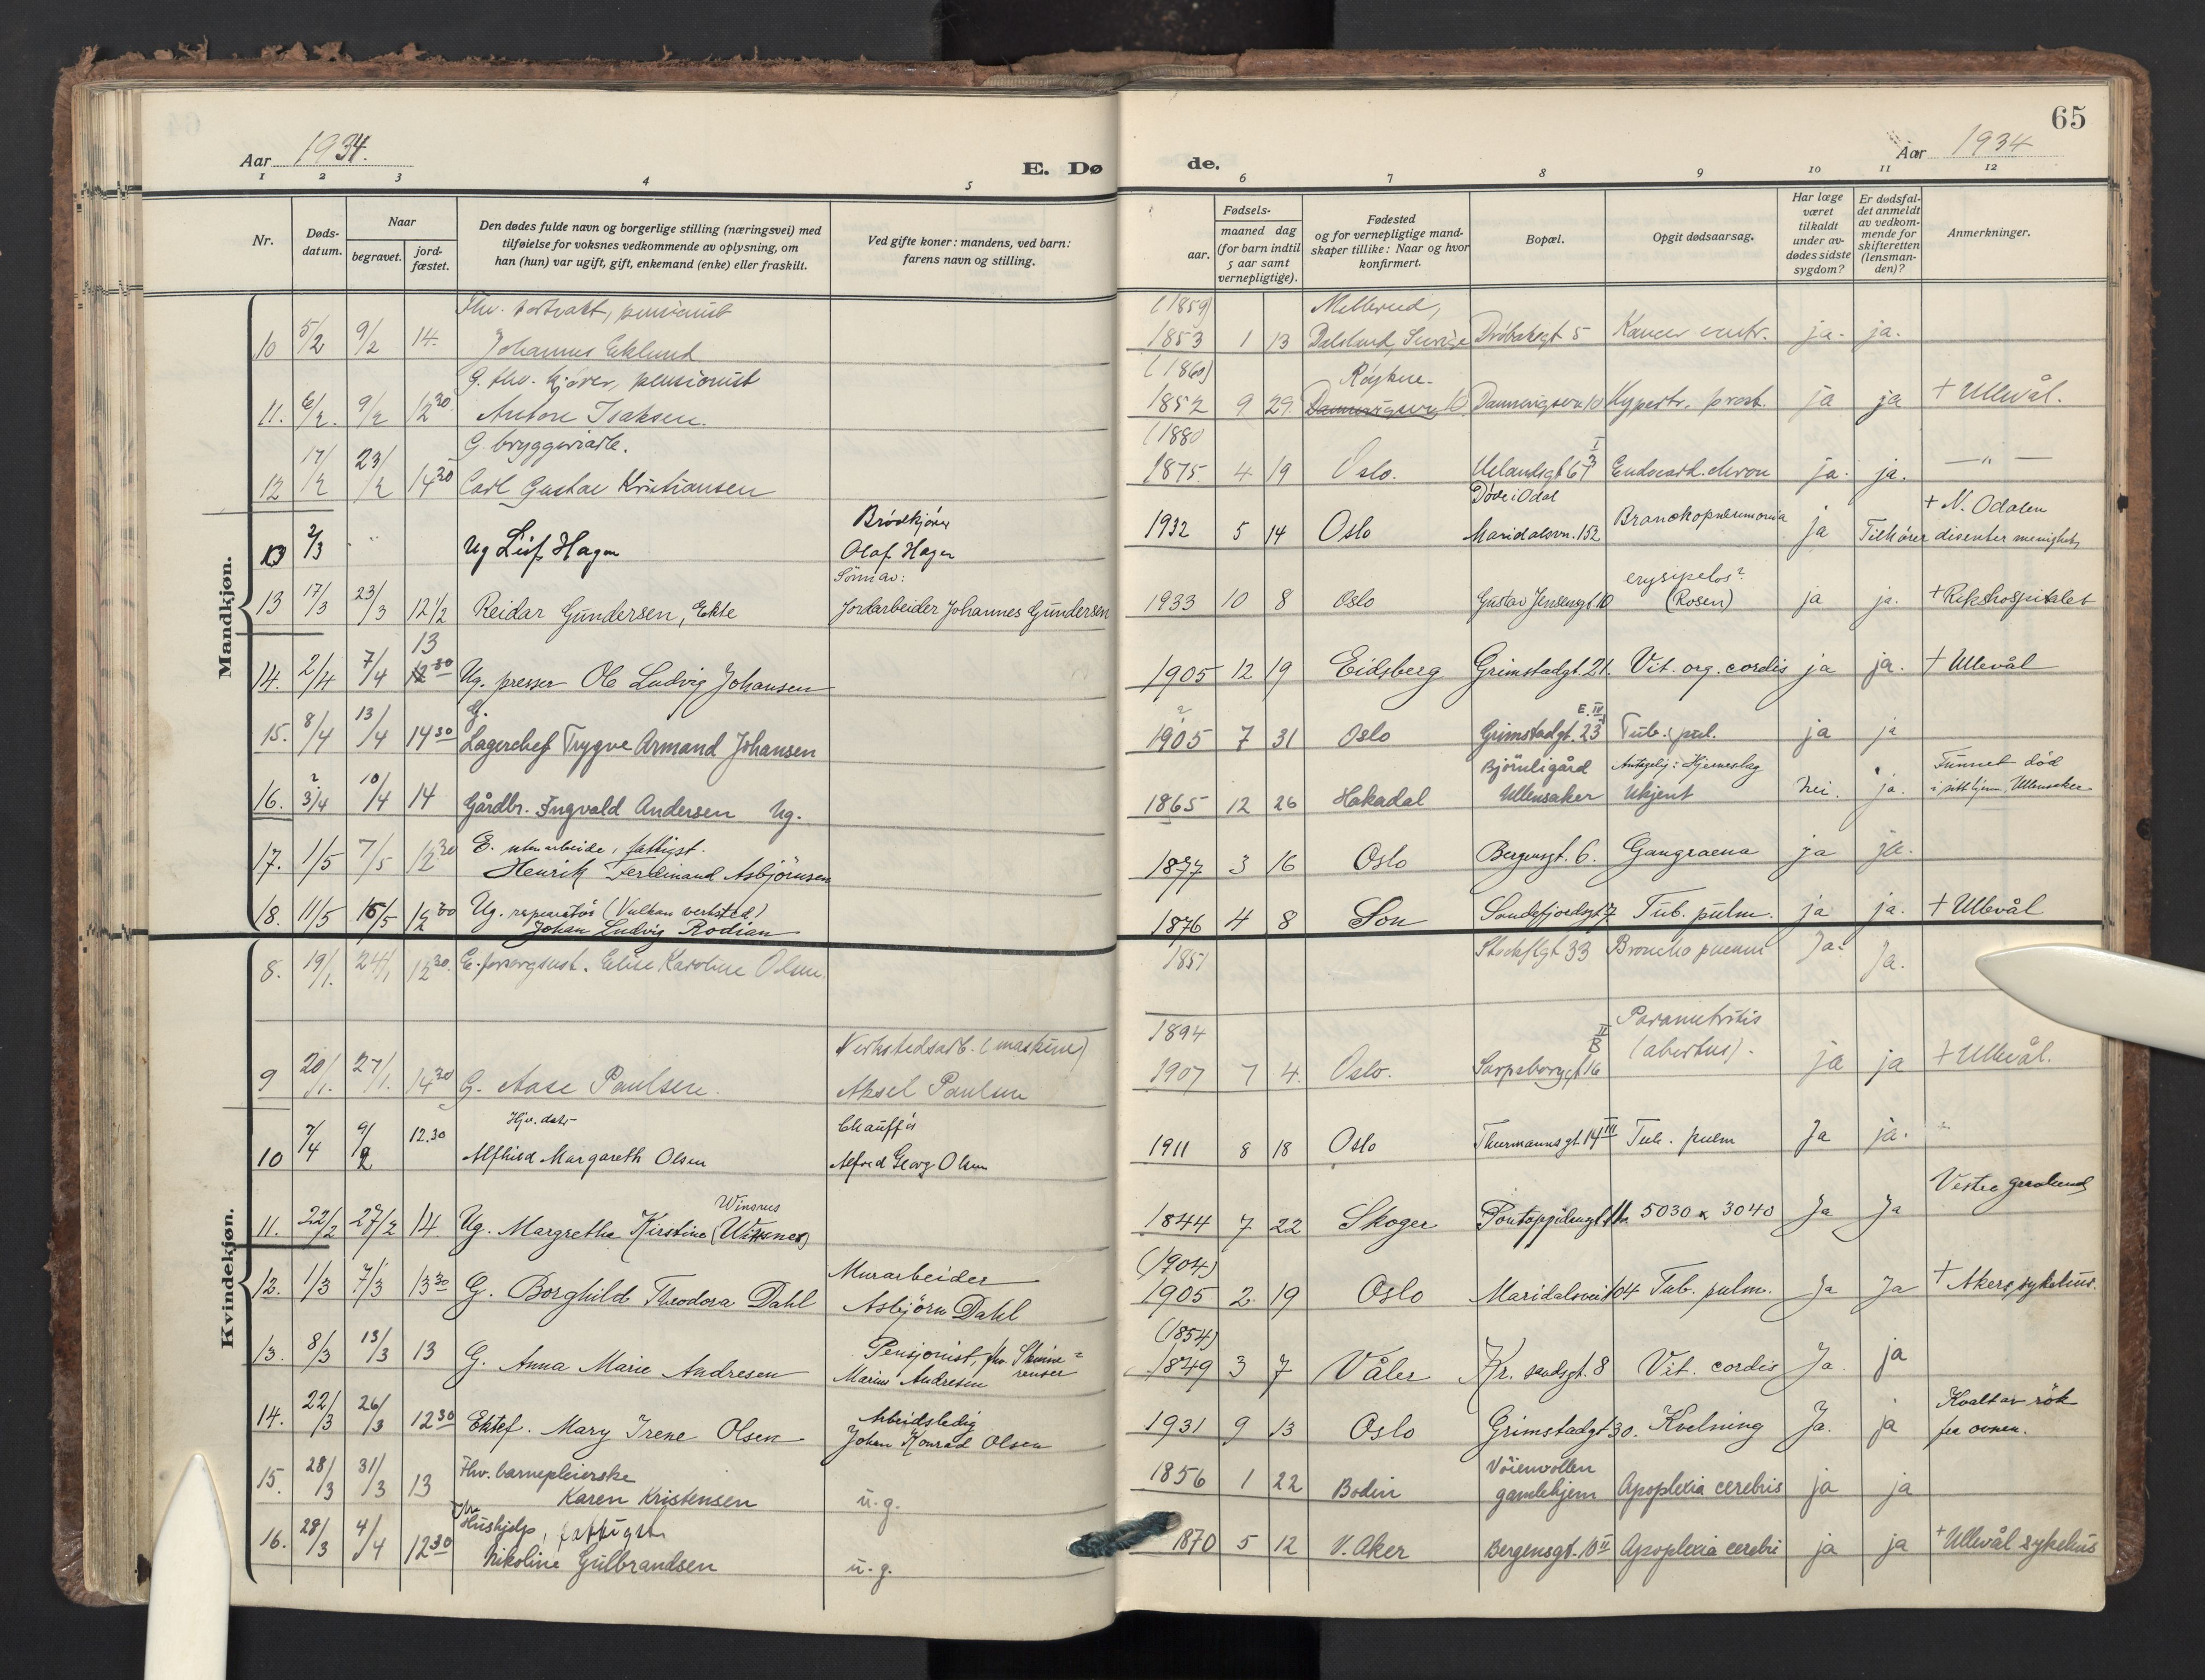 65
Aar 1934.
E. Dø
de.
Aar 1934
1 2 3 4 5 6 7 8 9 10 11 12
Nr.
Døds-
datum.
Naar
begravet.
jord-
fæstet.
Den dødes fulde navn og borgerlige stilling (næringsvei) med
tilføielse for voksnes vedkommende av oplysning, om
han (hun) var ugift, gift, enkemand (enke) eller fraskilt.
Ved gifte koner: mandens, ved barn:
farens navn og stilling.
aar.
Fødsels-
maaned dag
(for barn indtil
5 aar samt
vernepligtige).
Fødested
og for vernepligtige mand-
skaper tillike: Naar og hvor
konfirmert.
Bopæl.
Opgit dødsaarsag.
Har læge
været
tilkaldt
under av-
dødes sidste
sygdom?
Er dødsfal-
det anmeldt
av vedkom-
mende for
skifteretten
(lensman-
den)?
Anmerkninger.
Mandkjøn.
Fhv. pensionist (1859) Mellerud,
10 5/2 9/2 14. Johannes Eklund 1853 1 13 Dalsland, Sverige Drøbaksgt 5 Kancer ventr. ja. ja.
G. fhv. kjører, pensionist (1860) Røyken.
11. 6/2. 9/2 12 30 Anton Isaksen. 1852 9 29 Dannevigsvn 10 Dannevigsvn 10 Hypertr. prost. ja ja + Ullevål.
G. bryggeriarb. (1880 I
12 17/2 23/2 14 30 Carl Gustav Kristiansen 1875 4 19 Oslo. Uelandsgt 67 3 Endocard. chron ja. ja. — " —
Brödkjörer Döde i Odal + N. Odalen
13 2/3 Ug Leif Hagen Olaf Hagen 1932 5 14 Oslo Maridalsvn. 152 Bronchopneumonia ja Tilhörer disenter menighet,
Sönn av: erysipelas?
13 17/3 23/3 12 1/2 Reidar Gundersen, Ekte Jordarbeider Johannes Gundersen 1933 10 8 Oslo Gustav Jensensgt. 10 (Rosen) ja ja. + Rikshospitalet
13
14. 2/4 7/4 12 30 Ug. presser Ole Ludvig Johansen 1905 12 19 Eidsberg Grimstadgt. 21. Vit. org. cordis ja ja. + Ullevål
G. ? E. IV
15. 8/4 13/4 14 30 Lagerchef Trygve Armand Johansen 1905 7 31 Oslo Grimstadgt. 23 Tub. pul. ja ja
? Björnligård Antagelig: Hjerneslag Funnet död
16. 3/4 10/4 14 Gårdbr. Ingvald Andersen Ug. 1865 12 26 Hakadal Ullensaker Ukjent nei. ja. i sitt hjem, Ullensaker
E. uten arbeide, fattigst.
17. 1/5 7/5 12 30 Henrik Ferdinand Asbjörnsen 1877 3 16 Oslo Bergensgt. 6. Gangraena ja ja.
Ug. reparatör (Vulkan verksted)
18. 11/5 16/5 12 30 Johan Ludvig Rodian 1876 4 8 Son Sandefjordsgt 7 Tub. pulm. ja ja. + Ullevål
Kvindekjøn.
8. 19/1. 24/1 12 30. E. forsorgsust. Elise Karoline Olsen. 1851 Stockflgt 33 Broncho pneum Ja. Ja.
Verkstedsarb. (maskine) 1894 II B Parametritis
9 20/1. 27/1. 14 30 G. Aase Paulsen. Aksel Paulsen 1907 7 4. Oslo. Sarpsborggt 16 (abortus). ja ja + Ullevål.
Hjv. datr Chaufför
10 7/4 9/2 12.30 Alfhild Margareth Olsen Alfred Georg Olsen 1911 8 18 Oslo Thurmannsgt 14 III Tub. pulm Ja ja.
Winsnes Vestre gravlund
11. 22/2 27/2 14 Ug. Margrethe Kirstine (Winsnes) 1844 7 22 Skoger Pontoppidansgt 11a 5030 & 3040 Ja Ja
Murarbeider (1904)
12. 1/3 7/3 13 30 G. Borghild Theodora Dahl Asbjörn Dahl 1905 2 19 Oslo Maridalsvei 104 Tub. pulm. Ja Ja + Akers sykehus.
Pensjonist, fhv. Skinne- (1854)
renser
13. 8/3 13/3 13 G. Anna Marie Andresen Marius Andresen 1849 3 7 Våler Kr. sandsgt. 8 Vit. cordis Ja. ja
Arbeidsledig Kvalt av rök
14. 22/3 26/3 12 30 Ektef. Mary Irene Olsen Johan Konrad Olsen 1931 9 13 Oslo Grimstadgt 30. Kvelning Ja. ja fra ovnen.
Fhv. barnepleierske Vöienvollen
15. 28/3 31/3 13 Karen Kristensen u. g. 1856 1 22 Bodin gamlehjem Apoplexia cerebris ja ja
Fhv Hushjelp, fattigst
16. 28/3 4/4 12 30 Nikoline Gulbrandsen u. g. 1870 5 12 V. Aker Bergensgt. 10 II Apoplexia cerebri ja ja + Ullevål sykehus